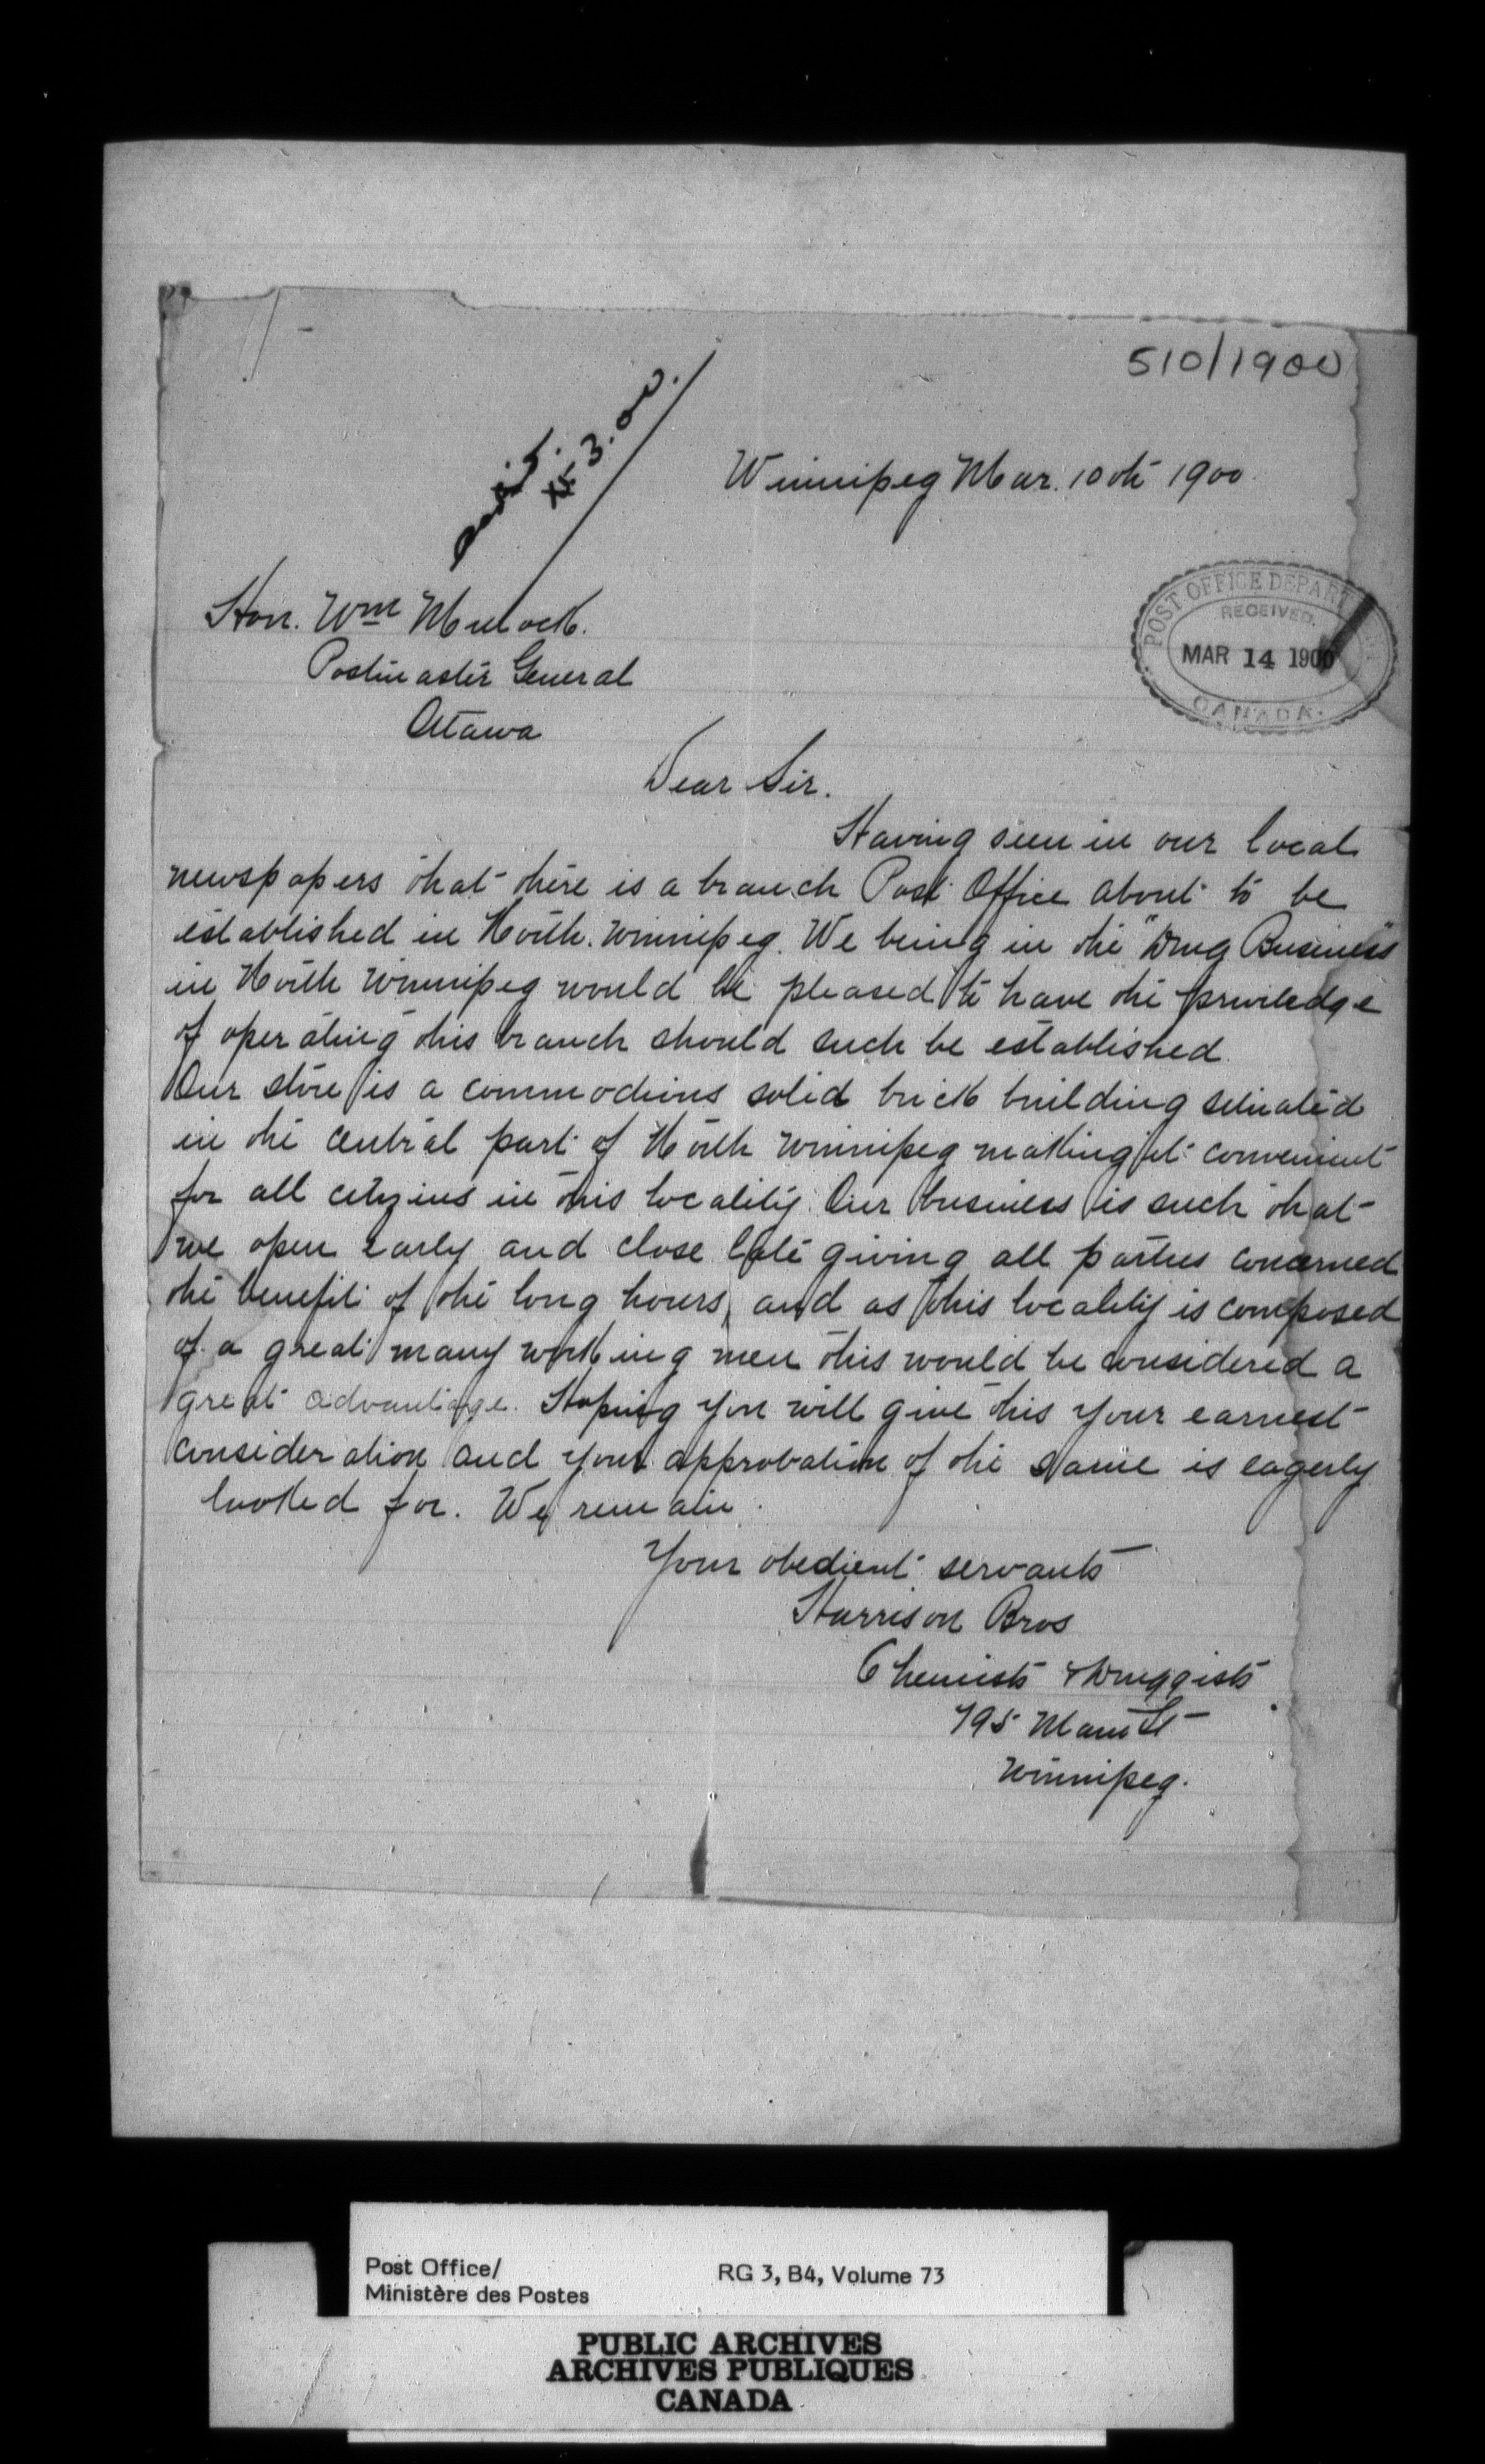 510/1900
15.3.00.
Winnipeg Mar. 10th 1900.
POST OFFICE DEPARTMENT
RECEIVED.
MAR 14 1900
CANADA.
Hon. Wm Mulock.
Postmaster General
Ottawa
Dear Sir.
Having seen in our local
newspapers that there is a branch Post Office about to be
established in North. Winnipeg. We being in the "Drug Business"
in North Winnipeg would be pleased to have the priviledge
of operating this branch should such be established.
Our store is a commodious solid brick building situated
in the central part of North Winnipeg making it convenient
for all citizens in this locality. Our business is such that
we open early and close late giving all parties concerned
the benefit of the long hours, and as this locality is composed
of a great many working men this would be considered a
great advantage. Hoping you will give this your earnest
consideration and your approbation of the same is eagerly
looked for. We remain.
Your obedient servants
Harrison Bros
Chemists & Druggists
795 Main St
Winnipeg.
Post Office/
Ministère des Postes
RG 3, B4, Volume 73
PUBLIC ARCHIVES
ARCHIVES PUBLIQUES
CANADA